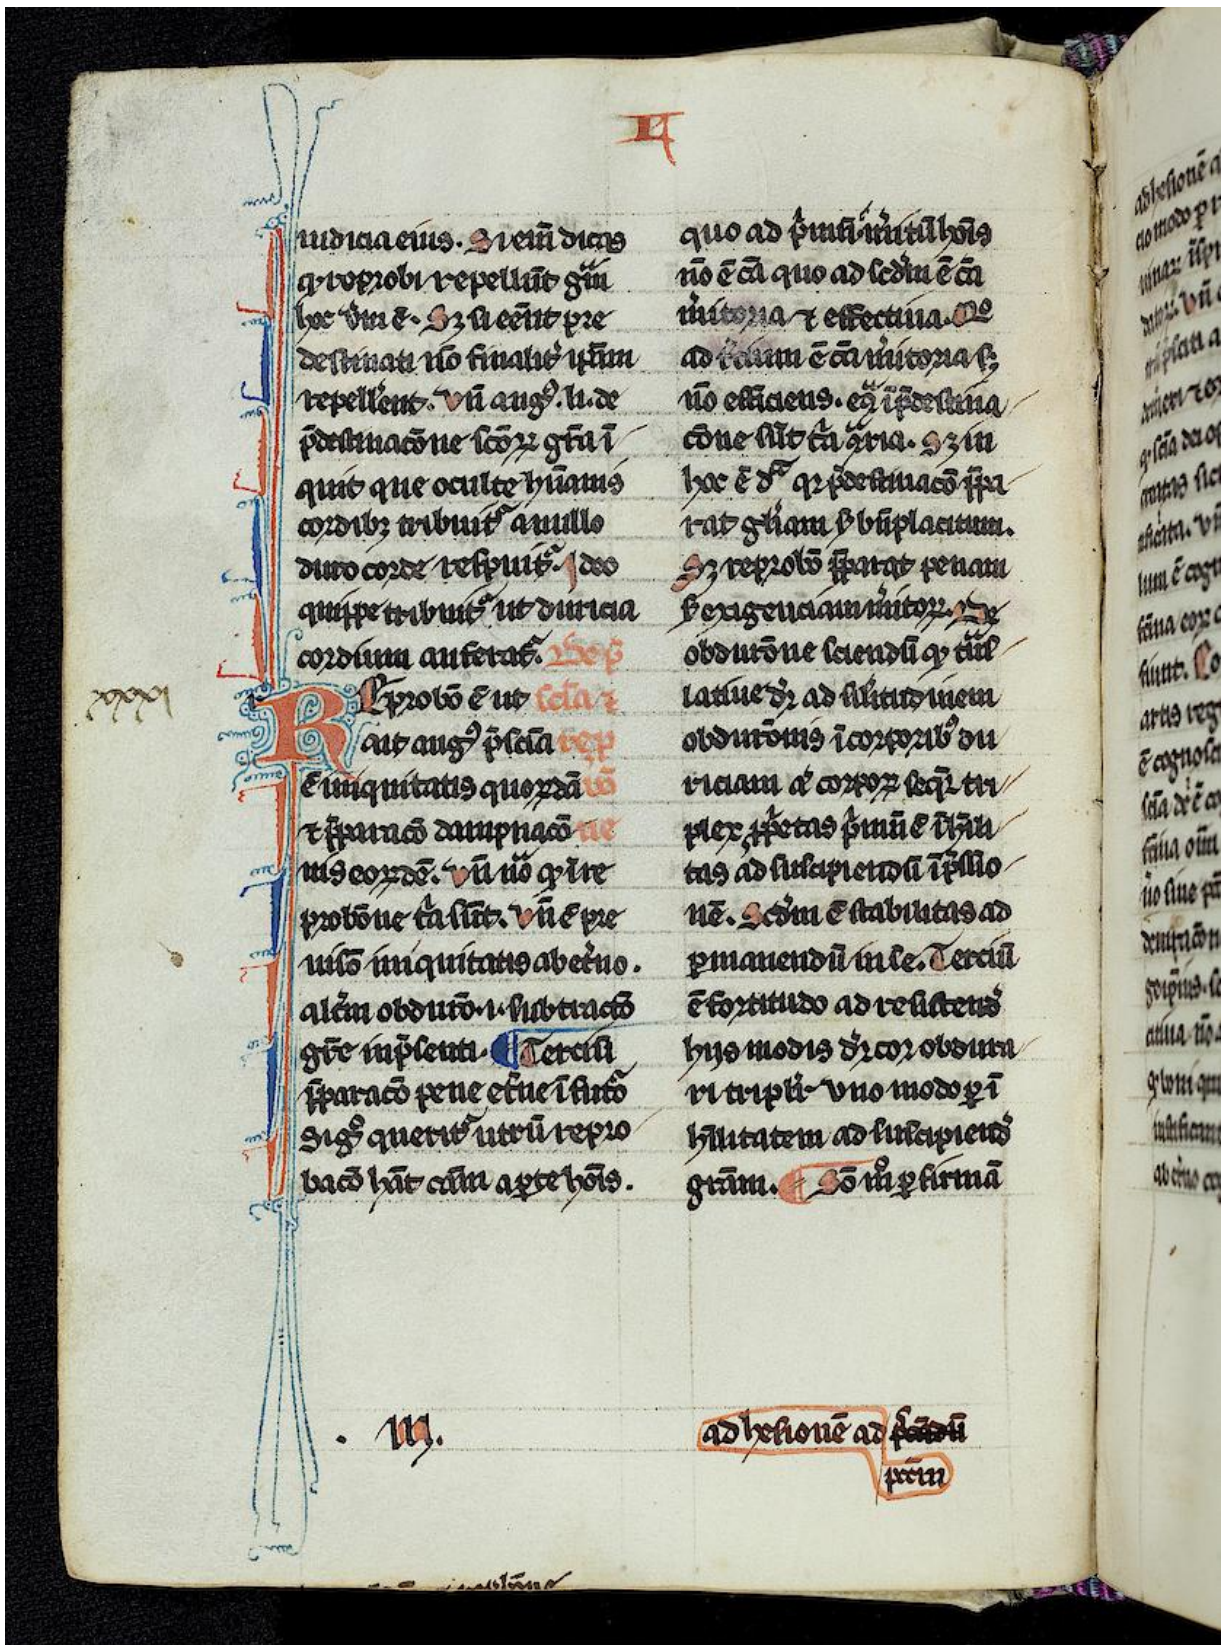 L
iudicia eius. Si enī dicas
ꝙ reprobi repellūt grām
hoc verū ē. Sꝫ si eēnt pre
destinati nō finalit᷑ ipsam
repellerent. Vn̄ augꝰ. li. de
p̄destinacōne scōꝝ gr̄a ī
quit que oculte hūanis
cordibꝫ tribuit᷑ a nullo
duro corde respuit᷑. Ideo
quippe tribuit᷑ ut duricia
cordium auferat᷑. De p̄
Reprobō ē ut scīa ⁊
ait augꝰ p̄scīa rep
ē iniquitatis quoꝝdā
⁊ p̄paracō dampnacō
nis eoꝝdē. Vn̄ nō ꝙ ī re
probōne tria sūt. Vn̄ ē pre
uisō iniquitatis ab et̄no.
alt̄m obdurō .i. subtractō
gr̄e in p̄senti. ¶ Terciū
p̄paracō pene et̄ne ī futō
Si gͦ querit᷑ utrū repro
bacō hāt cām a ꝑte hoīs.
quo ad pͥmū m̄itū hoīs
nō ē cā quo ad scd̄m ē cā
m̄itoria ⁊ effectiua. Qo
ad t̄cium ē cā m̄itoria sꝫ
nō efficiens. eq̄ ī p̄destina
cōne sūt tria ꝯͣria. Sꝫ in
hoc ē drͣ qꝛ p̄destinacō p̄pa
rat gl̄iam ẜ b̄n̄placitum.
Sꝫ reprobō p̄parat penam
ẜ exigenciam m̄itoꝝ. De
obdurōne sciendū ꝙ trās
latiue dr̄ ad sil̄itudinem
obdurōnis ī corporibꝰ du
riciam aū corpoꝝ seqͬ tri
plex ꝓp̄etas pͥmū ē īhīli
tas ad suscipiendū īp̄ssio
nē. Scd̄m ē stabilitas ad
ꝑmanendū in se. Terciū
ē fortitudo ad resistendꝰ
hijs modis dr̄ cor obdura
ri tripłr vno modo ꝑ ī
hīlitatem ad suscipiendꝰ
grām. ¶ Sō mͦ ꝑ firmā
. III.
adhesionē ad
pct̄m